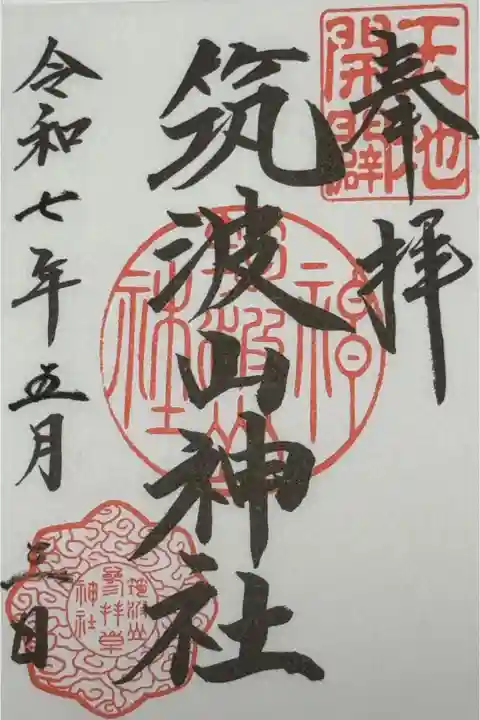 奉拝
天地開闢
筑波山神社
筑波山神社
令和七年五月三日
筑波山神社参拝章